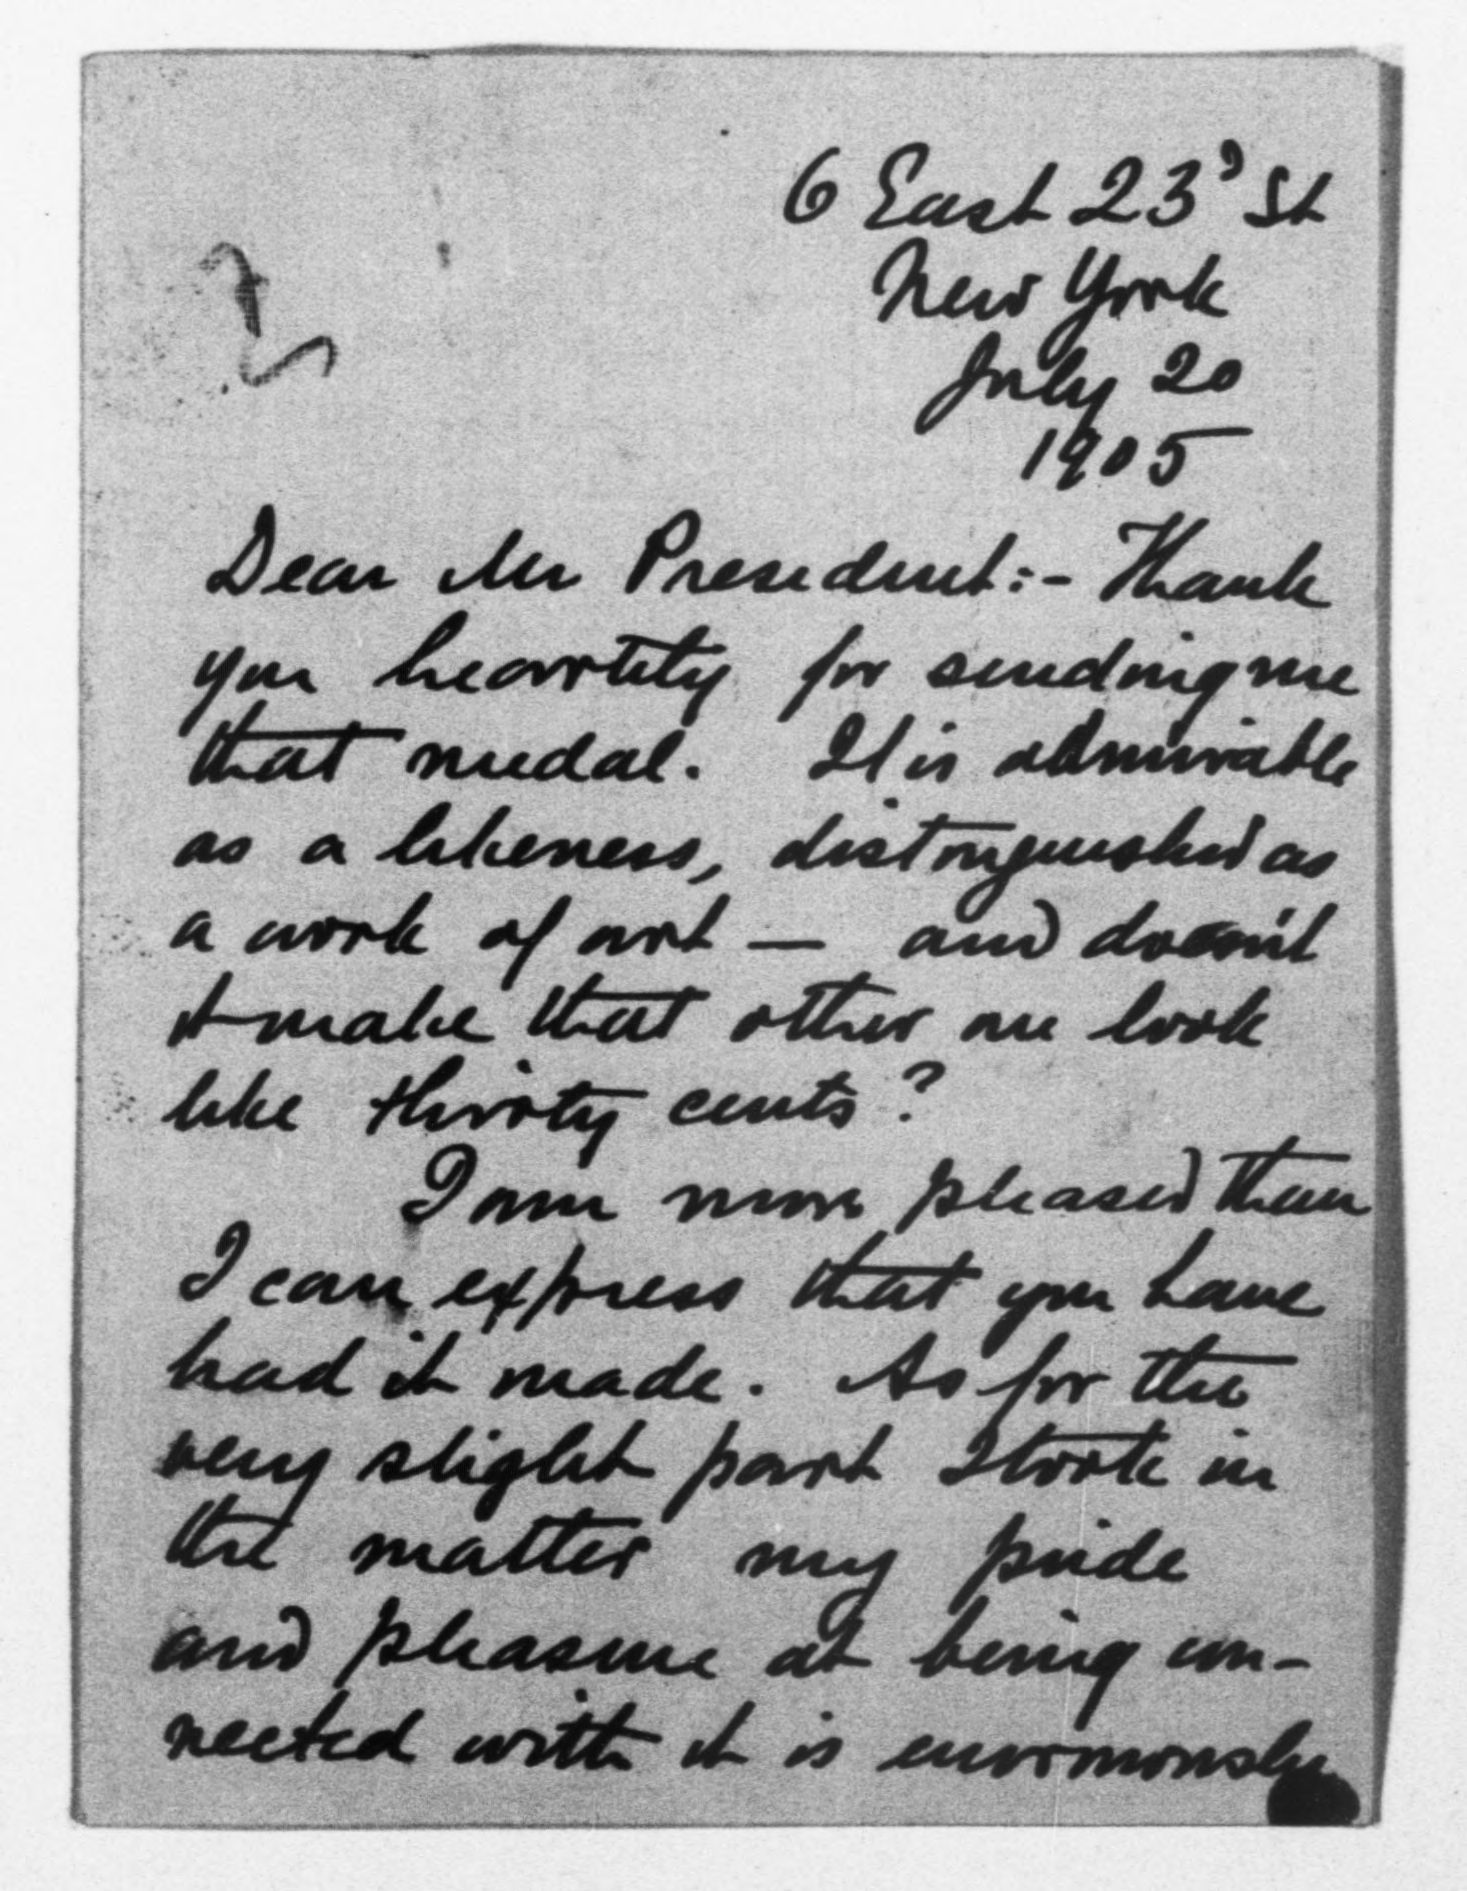 6 East 23d St
New York
July 20
1905
Dear Mr President:- Thank
you heartily for sending me
that medal. It is admirable
as a likeness, distinguished as
a work of art — and doesn't
it make that other one look
like thirty cents?
I am more pleased than
I can express that you have
had it made. As for the
very slight part I took in
the matter my pride
and pleasure at being con-
nected with it is enormously